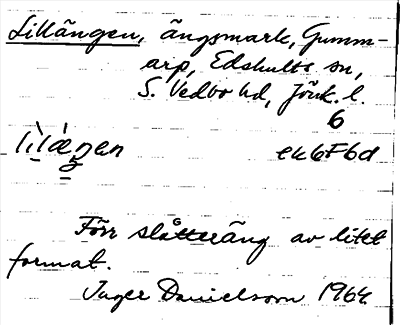 Lillängen, ängsmark, Gumm-
arp, Edshults sn,
S. Vedbo hd, Jönk. l.
6
ek6F6d
Förr slåtteräng av litet
format.
Inger Danielsson 1964